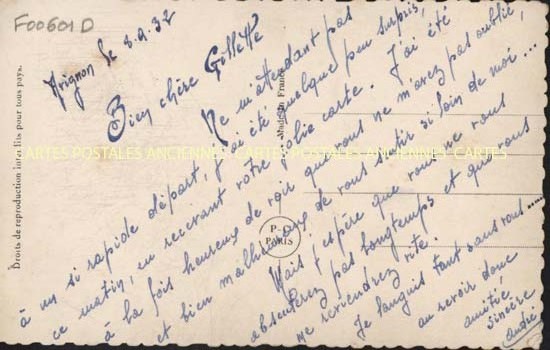 F00601D
Avignon le 8.9.37
Bien chère Gillette
Ne m'attendant pas
à un si rapide départ, j'ai été quelque peu surpris,
ce matin, en recevant votre jolie carte. J'ai été
à la fois heureux de voir que vous ne m'avez pas oublié,
et bien malheureux de vous sentir si loin de moi...
Mais j'espère que vous ne vous
absenterez pas longtemps et que vous
me reviendrez vite.
Je languis tant sans vous.....
au revoir donc
amitié
sincère
André
Droits de reproduction interdits pour tous pays.
Made in France
P-C
PARIS
CARTES POSTALES ANCIENNES CARTES POSTALES ANCIENNES CARTES